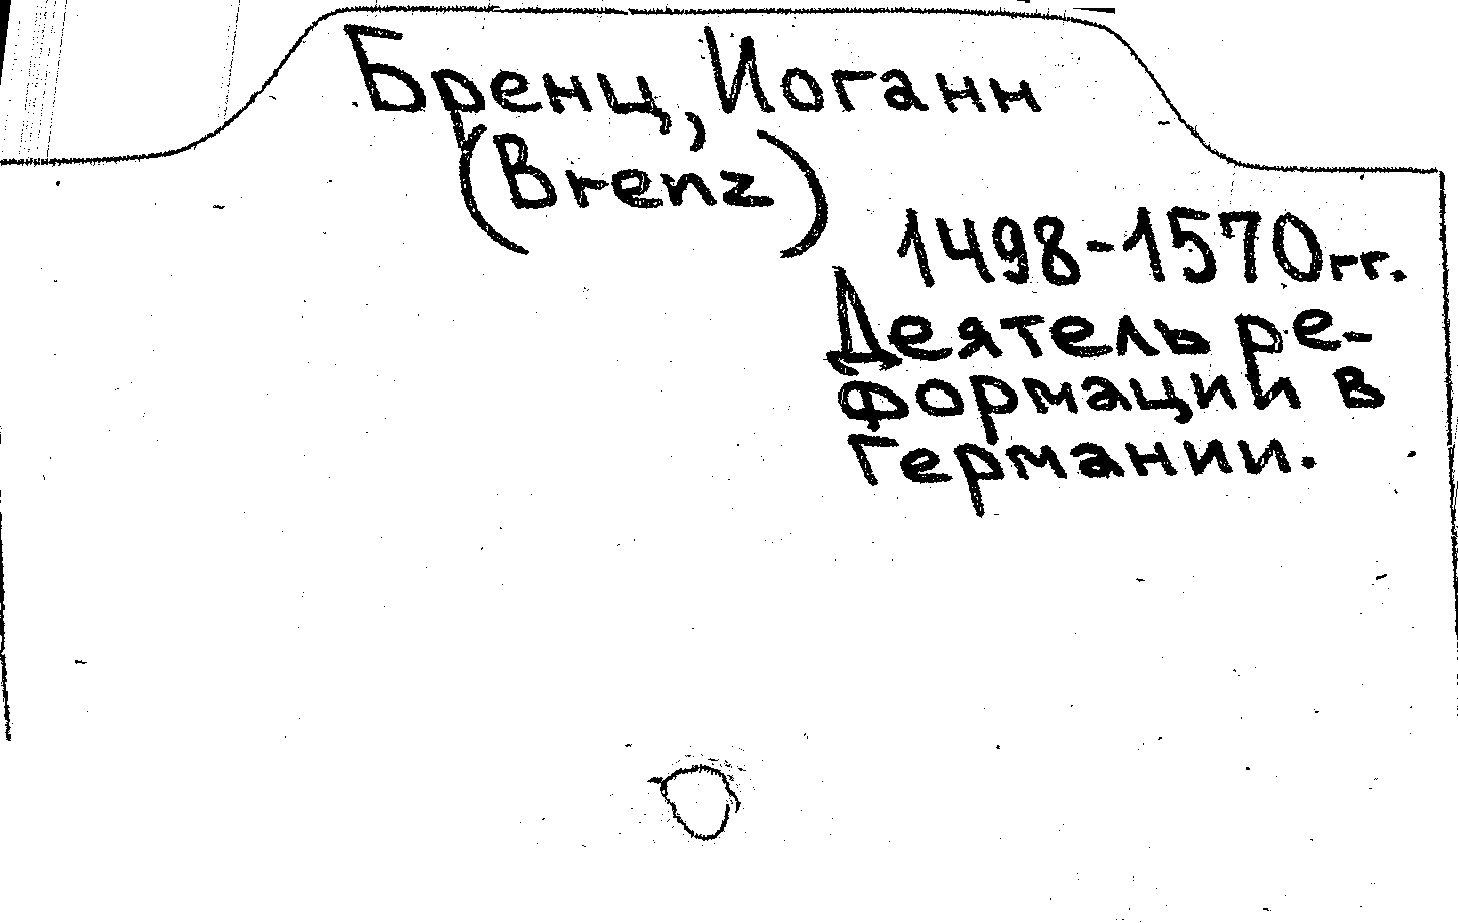 Бренц, Иоганн
(Brenz)
1498-1570гг.
Деятель ре-
формации в
Германии.